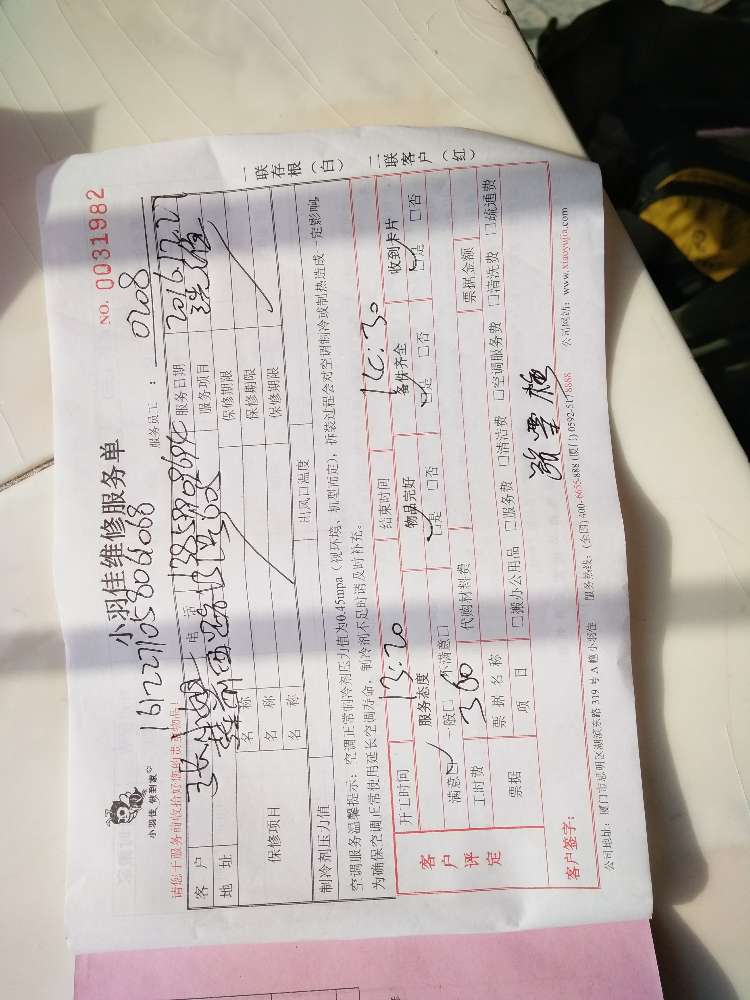 小羽佳 做到家
小羽佳维修服务单
NO. 0031982
161227105806068
服务员工： 0208
请您于服务前收拾好您的贵重物品！
客户 电话 13855908684 服务日期 2016.12.27
地址 服务项目
保修项目 名称 保修期限
名称 保修期限
名称 保修期限
制冷剂压力值 出风口温度
空调服务温馨提示：空调正常制冷剂压力值为0.45mpa（视环境、机型而定），拆装过程会对空调制冷或制热造成一定影响
为确保空调正常使用延长空调寿命，制冷剂不足时请及时补充。
一联存根（白） 二联客户（红）
客户评定
开工时间 13:20 结束时间 14:30
服务态度 物品完好 备件齐全 收到卡片
满意□ 一般□ 不满意□ □是 □否 □是 □否 □是 □否
工时费 360 代购材料费 票据金额
票据 票据名称
项目 □搬办公用品 □服务费 □清洁费 □空调服务费 □清洗费 □疏通费
客户签字：
公司地址：厦门市思明区湖滨东路319号A幢小羽佳 服务热线：(全国)400-8655-888 (厦门)0592-5178888 公司网站：www.xiaoyujia.com